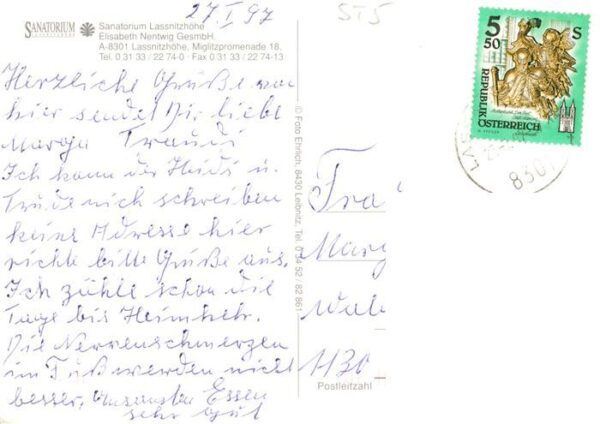 27/I 97
575
SANATORIUM
Sanatorium Lassnitzhöhe
Elisabeth Nentwig GesmbH
A-8301 Lassnitzhöhe, Miglitzpromenade 18,
Tel. 0 31 33 / 22 74-0 · Fax 0 31 33 / 22 74-13
Herzliche Grüße von
hier sendet Dir liebe
Traudi
Ich kann der Heidi u.
Trude nich schreiben
keine Adresse hier
richte bitte Grüße aus.
Ich zähle schon die
Tage bis Heimkehr.
Die Nervenschmerzen
im Fuß werden nicht
besser, Essen
sehr gut
© Foto Ehrlich, 8430 Leibnitz, Tel. 0 34 52 / 82 861
5
50
S
REPUBLIK
ÖSTERREICH
8301
Tra
Marg
1130
Postleitzahl